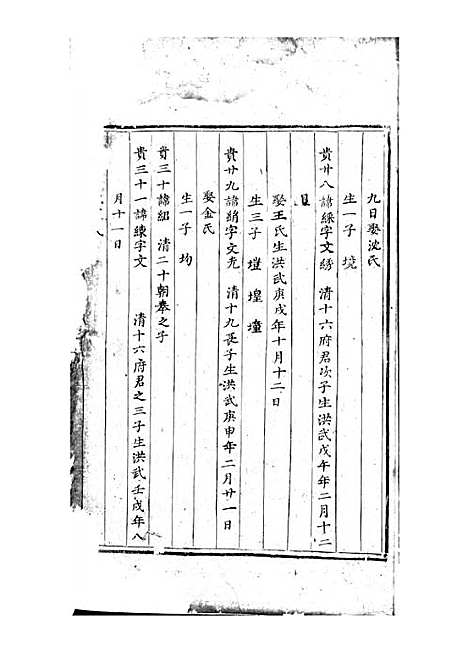 九日娶沈氏
生一子 境
貴廿八諱綵字文綉 清十六府君次子生洪武戊午年二月十二
日
娶王氏生洪武庚戌年十月十二日
生三子 塏 堭 墥
貴廿九諱綃字文光 清十九長子生洪武庚申年二月廿一日
娶金氏
生一子 均
貴三十諱紹 清二十朝奉之子
貴三十一諱練字文 清十六府君之三子生洪武壬戌年八
月十一日